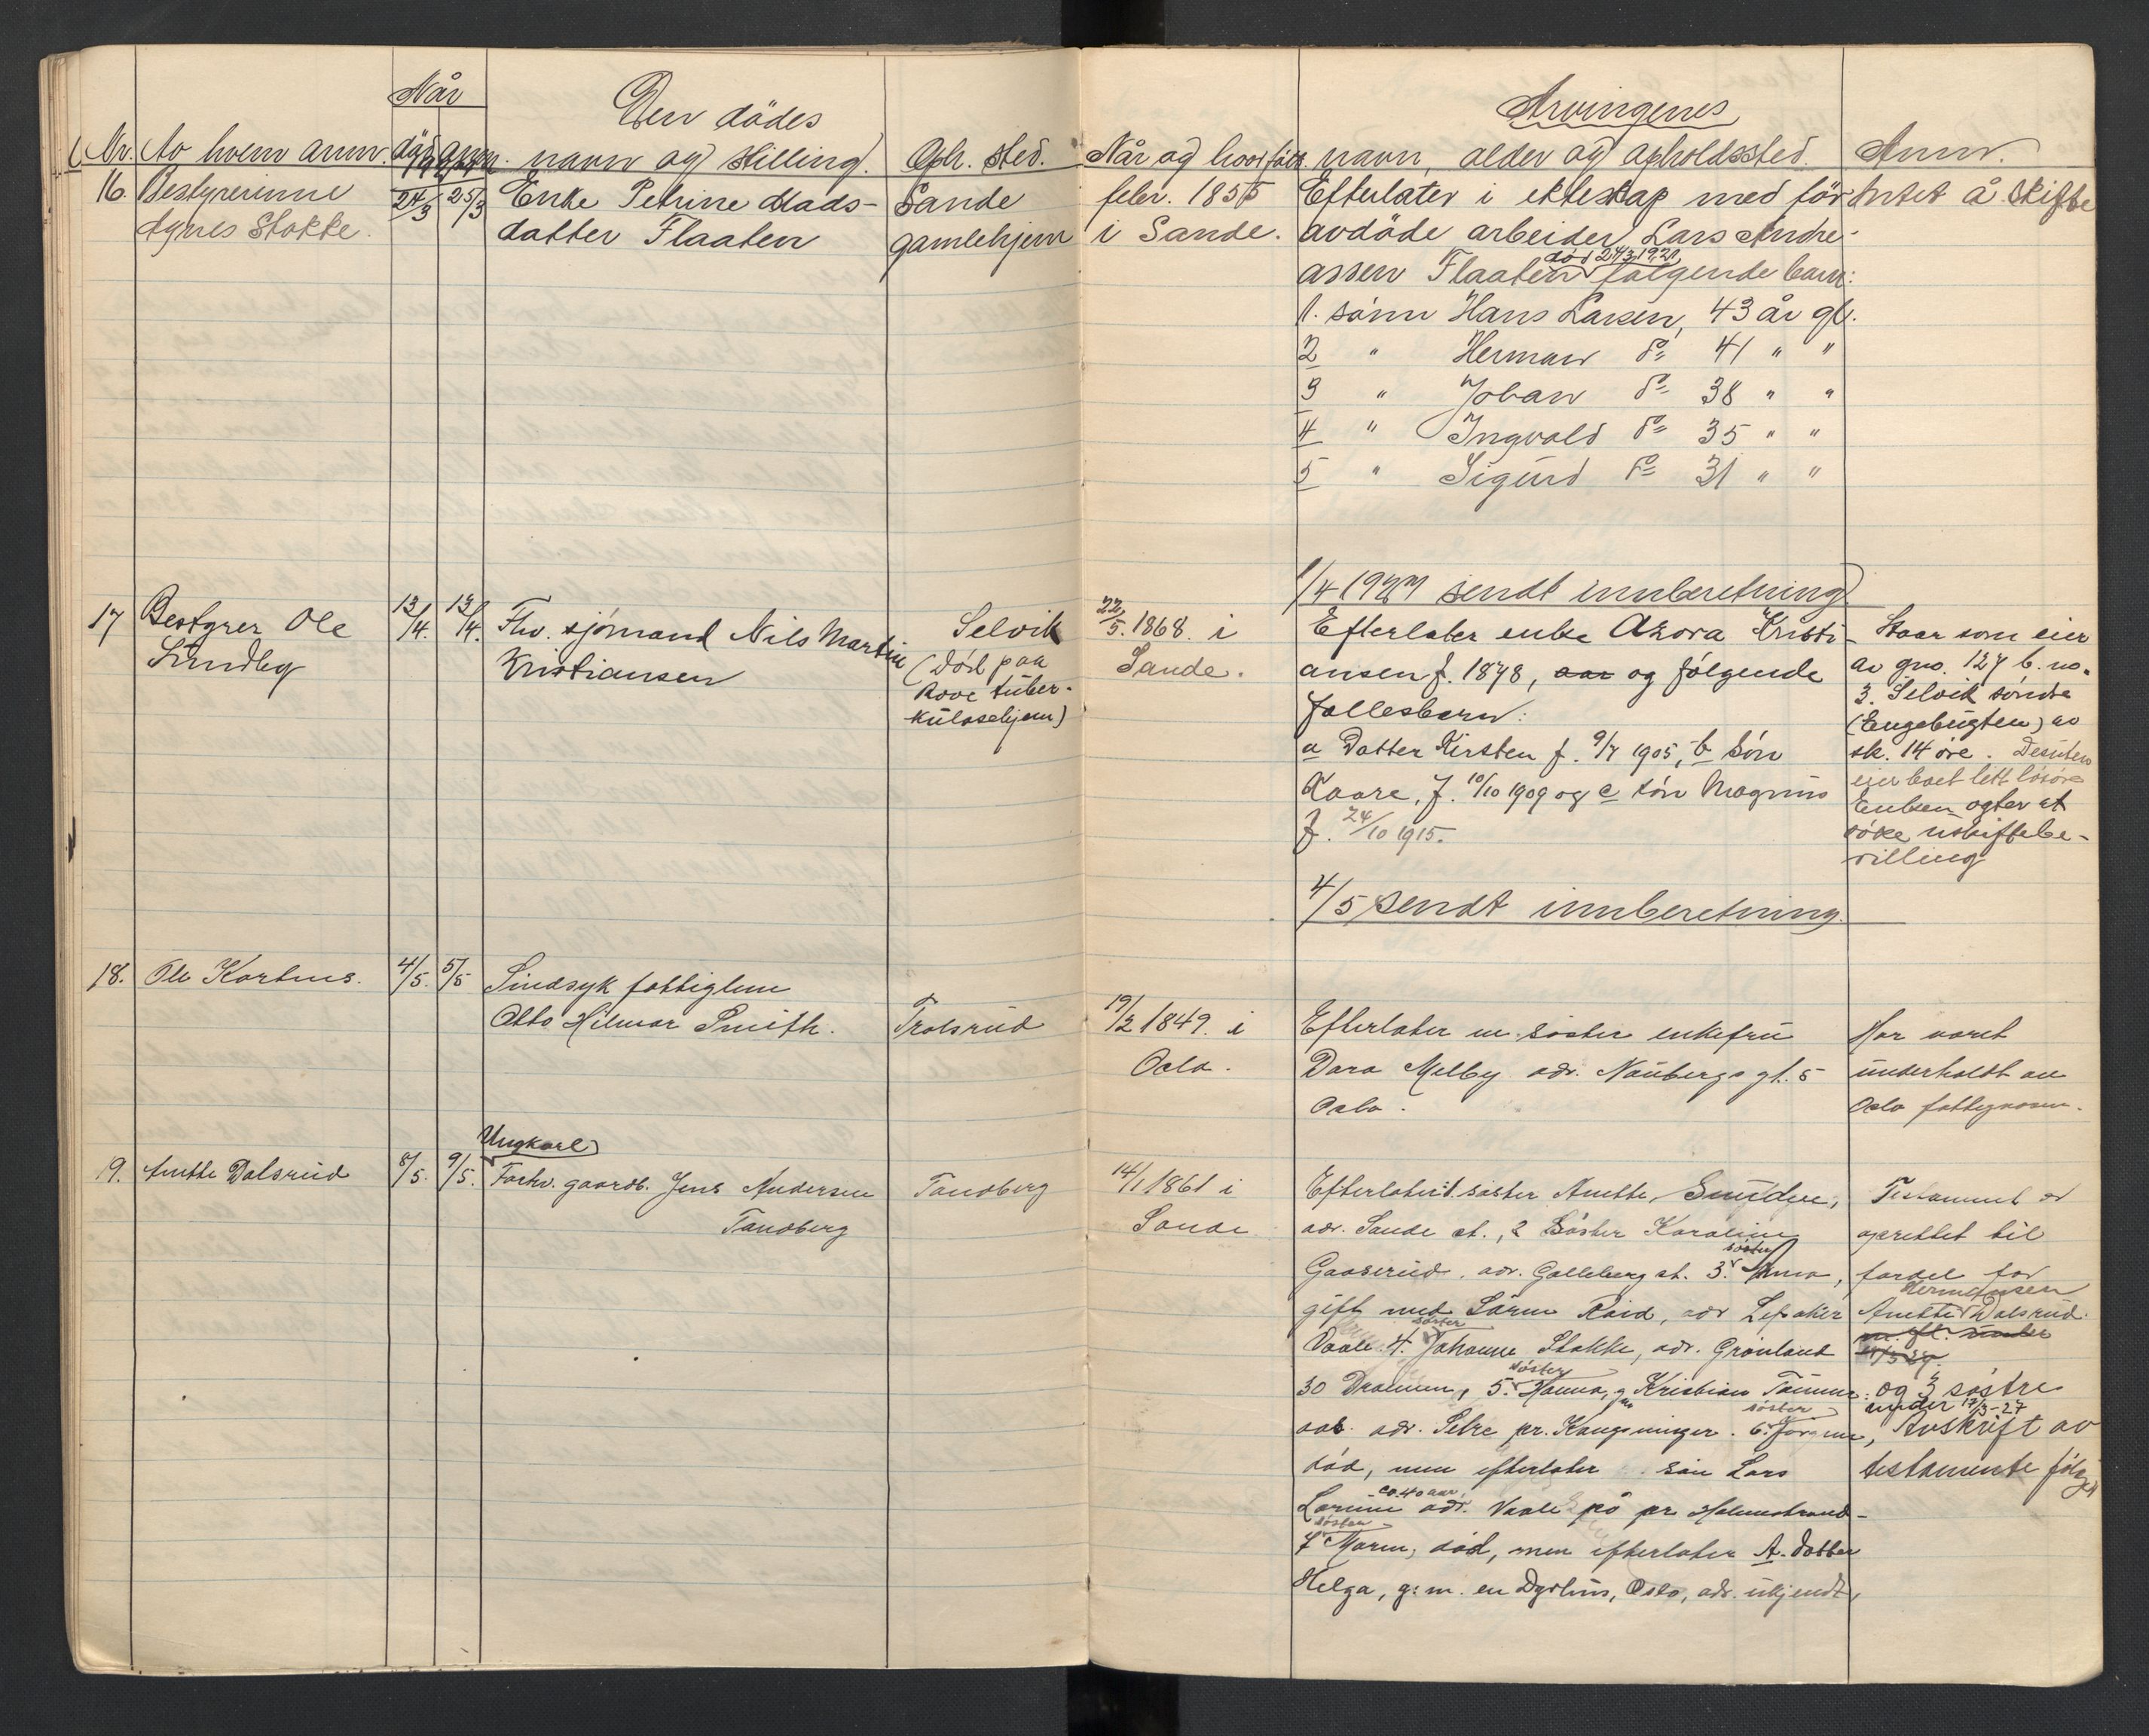 Når
Den dødes
Arvingenes
Nr. Av hvem anm. død anm. navn og stilling. Oph. sted. Når og hvor født navn, alder og opholdssted. Anm.
16. Bestyrerinne 24/3 25/3 Enke Petrine Mads- Sande febr. 1855 Efterlater i ekteskap med før Intet å skifte
Agnes Stokke. datter Flaaten gamlehjem i Sande. avdöde arbeider Lars Andre-
død 24/3 1921
assen Flaaten følgende barn:
1. sønn Hans Larsen, 43 år gl.
2 " Herman do 41 " "
3 " Johan do 38 " "
4 " Ingvald do 35 " "
5 " Sigurd do 31 " "
1/4 1927 sendt innberetning
17 Bestyrer Ole 13/4. 13/4. Fhv. sjømand Nils Martin Selvik 22/5. 1868. i Efterlater enke Azora Kristi- Staar som eier
Lundby Kristiansen (død paa Sande. ansen f. 1878, og følgende av gno. 127 b. no.
Rove tuber- fællesbarn: 3. Selvik søndre
kulosehjem) (Engebugten) av
a Datter Kirsten f. 9/7 1905, b Søn sk. 14 øre. Desuten
Kaare, f. 10/10 1909 og c søn Magnus eier boet lett løsøre
f. 24/10 1915. Enken agter at
søke uskiftebe-
villing
4/5 sendt innberetning.
18. Ole Kortnes. 4/5. 5/5 Sindsyk fattiglem
Otto Hilmar Smith. Trolsrud 19/2 1849. i Efterlater en søster enkefru Har været
Oslo. Dora Melby adr. Naubergs gt. 5 underholdt av
Oslo. Oslo fattigvæsen.
Ungkarl
9. Anette Dalsrud 8/5. 9/5. Forhv. gaardb. Jens Andersen Tandberg 14/1 1861 i Efterlater 1. søster Anette, Testament er
Tandberg Sande adr. Sande st., 2 Søster Karoline oprettet til
søster
Gaaserud, adr. Galleberg st. 3. Anna, fordel for
Hermansen
gift med Søren adr Anette Dalsrud.
søster
Vaale 4. Johanne Stokke, adr. Grønland
søster
30 Drammen, 5. Hanna, gm Kristian og 3 søstre
søster under 17/3-27
adr. pr. Kongsvinger. 6. Avskrift av
død, men efterlater søn Lars testamente følger
ca. 40 aar,
adr. Vaale på pr Holmestrand-
søster
7 Maren, død, men efterlater A. datter
Helga, g: m. en Dyrhus, Oslo, adr. ukjendt,